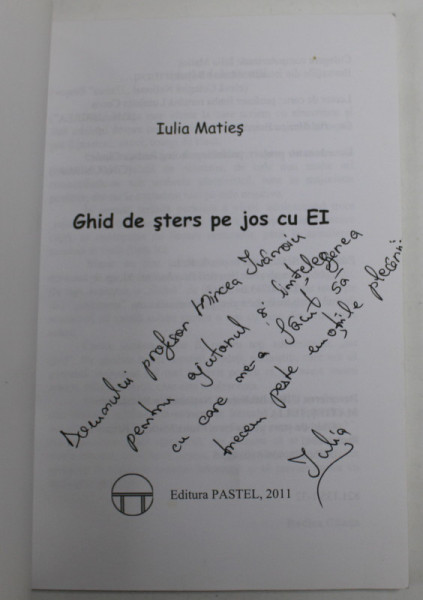 Iulia Matieş
Ghid de şters pe jos cu EI
Domnului profesor Mircea Ivănoiu
pentru ajutorul şi înţelegerea
cu care ne-a făcut să
trecem peste emoţiile plecării.
Iulia
Editura PASTEL, 2011